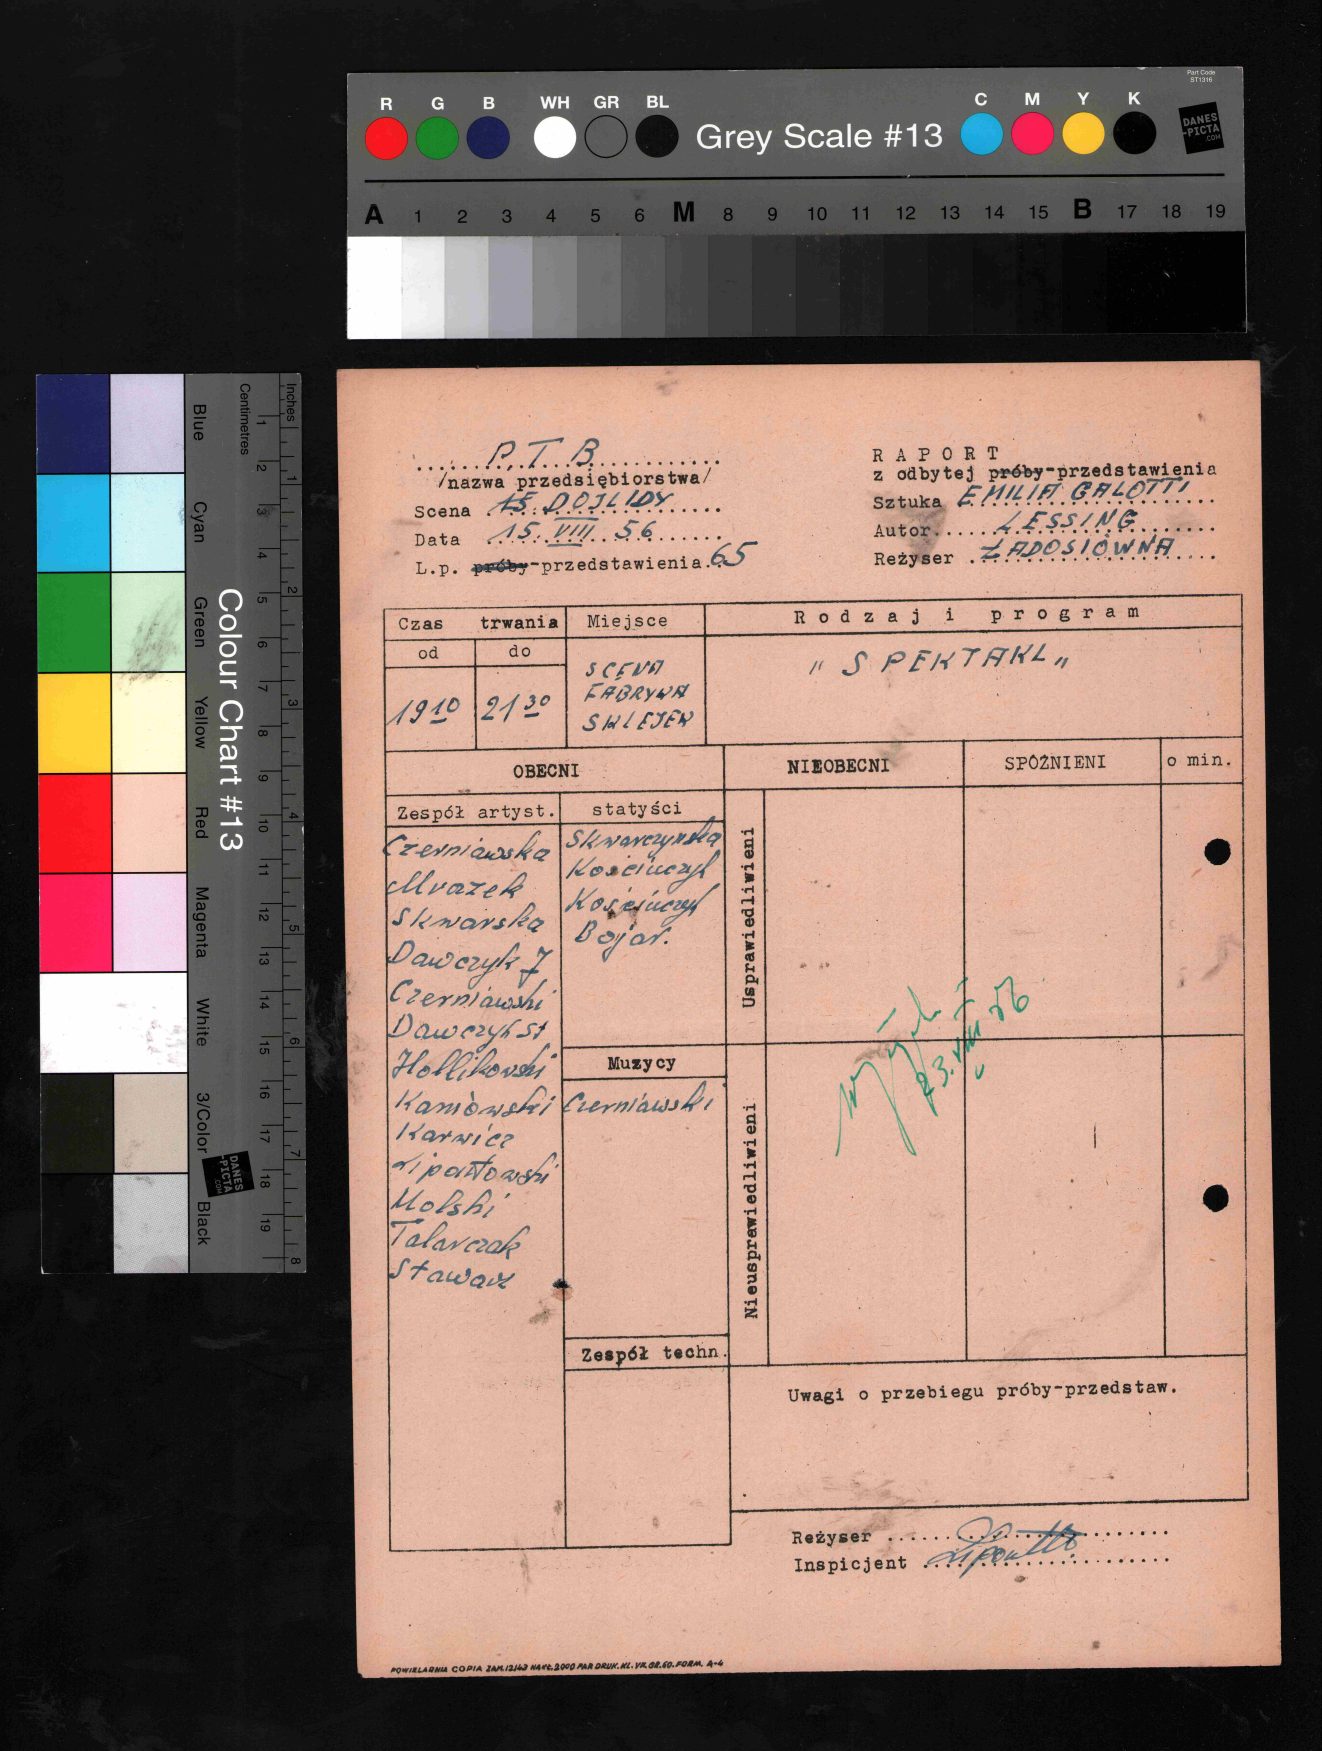 Part Code
ST1316
R G B WH GR BL Grey Scale #13 C M Y K
DANES
-PICTA
.COM
A 1 2 3 4 5 6 M 8 9 10 11 12 13 14 15 B 17 18 19
Colour Chart #13
Blue
Cyan
Green
Yellow
Red
Magenta
White
3/Color
Black
Centimetres
1 2 3 4 5 6 7 8 9 10 11 12 13 14 15 16 17 18 19
Inches
1 2 3 4 5 6 7 8
DANES
-PICTA
.COM
P.T.B.
/nazwa przedsiębiorstwa/
Scena DOJLIDY
Data 15. VIII. 56
L.p. próby-przedstawienia. 65
RAPORT
z odbytej próby-przedstawienia
Sztuka EMILIA GALOTTI
Autor LESSING
Reżyser ŁADOSIÓWNA
Czas trwania Miejsce Rodzaj i program
od do
19 10 21 30
SCENA
FABRYKA
SKLEJEK
"SPEKTAKL"
OBECNI NIEOBECNI SPÓŹNIENI o min.
Zespół artyst. statyści
Czerniawska
Mrazek
Skwarska
Dawczyk J
Czerniawski
Dawczyk St
Hollikowski
Kaniowski
Karwicz
Lipowski
Molski
Talarczak
Stawarz
Skwarczyńska
Kościuczyk
Kościuczyk
Bojar.
Muzycy
Czerniawski
Zespół techn.
Usprawiedliwieni
Nieusprawiedliwieni
23. VIII 56
Uwagi o przebiegu próby-przedstaw.
Reżyser
Inspicjent
POWIELARNIA COPIA ZAM. 12143 NAKŁ. 2000 PAP. DRUK. KL. VII. GR. 60. FORM. A-4